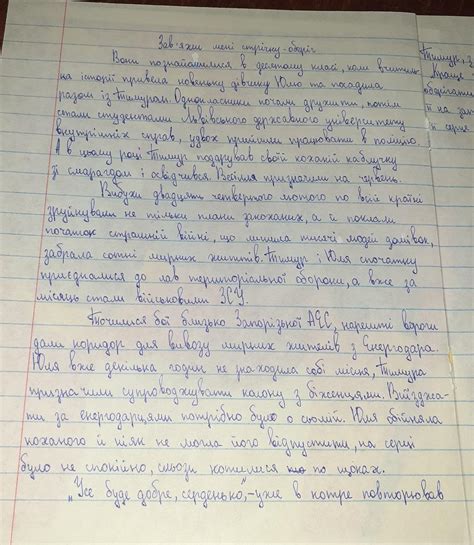 Зав'яжи мені стрічку-оберіг
Вони познайомилися в десятому класі, коли вчитель-
ка історії привела новеньку дівчину Юлю та посадила
разом із Тимуром. Однокласники почали дружити, потім
стали студентами Львівського державного університету
внутрішніх справ, удвох прийшли працювати в поліцію.
А в цьому році Тимур подарував своїй коханій каблучку
зі смарагдом і освідчився. Весілля призначили на червень.
Вибухи двадцять четвертого лютого по всій країні
зруйнували не тільки плани закоханих, а й поклали
початок страшній війні, що лишила тисячі людей домівок,
забрала сотні мирних життів. Тимур і Юля спочатку
приєдналися до лав територіальної оборони, а вже за
місяць стали військовими ЗСУ.
Точилися бої близько Запорізької АЕС, нарешті вороги
дали коридор для вивозу мирних жителів з Енергодара.
Юля вже декілька годин не знаходила собі місця, Тимура
призначили супроводжувати колону з біженцями. Виїзджа-
ти за енергодарцями потрібно було о сьомій. Юля обійняла
коханого й ніяк не могла його відпустити, на серці
було не спокійно, сльози котилися по щоках.
„Усе буде добре, серденько", – уже в котре повторював
Тимур, з